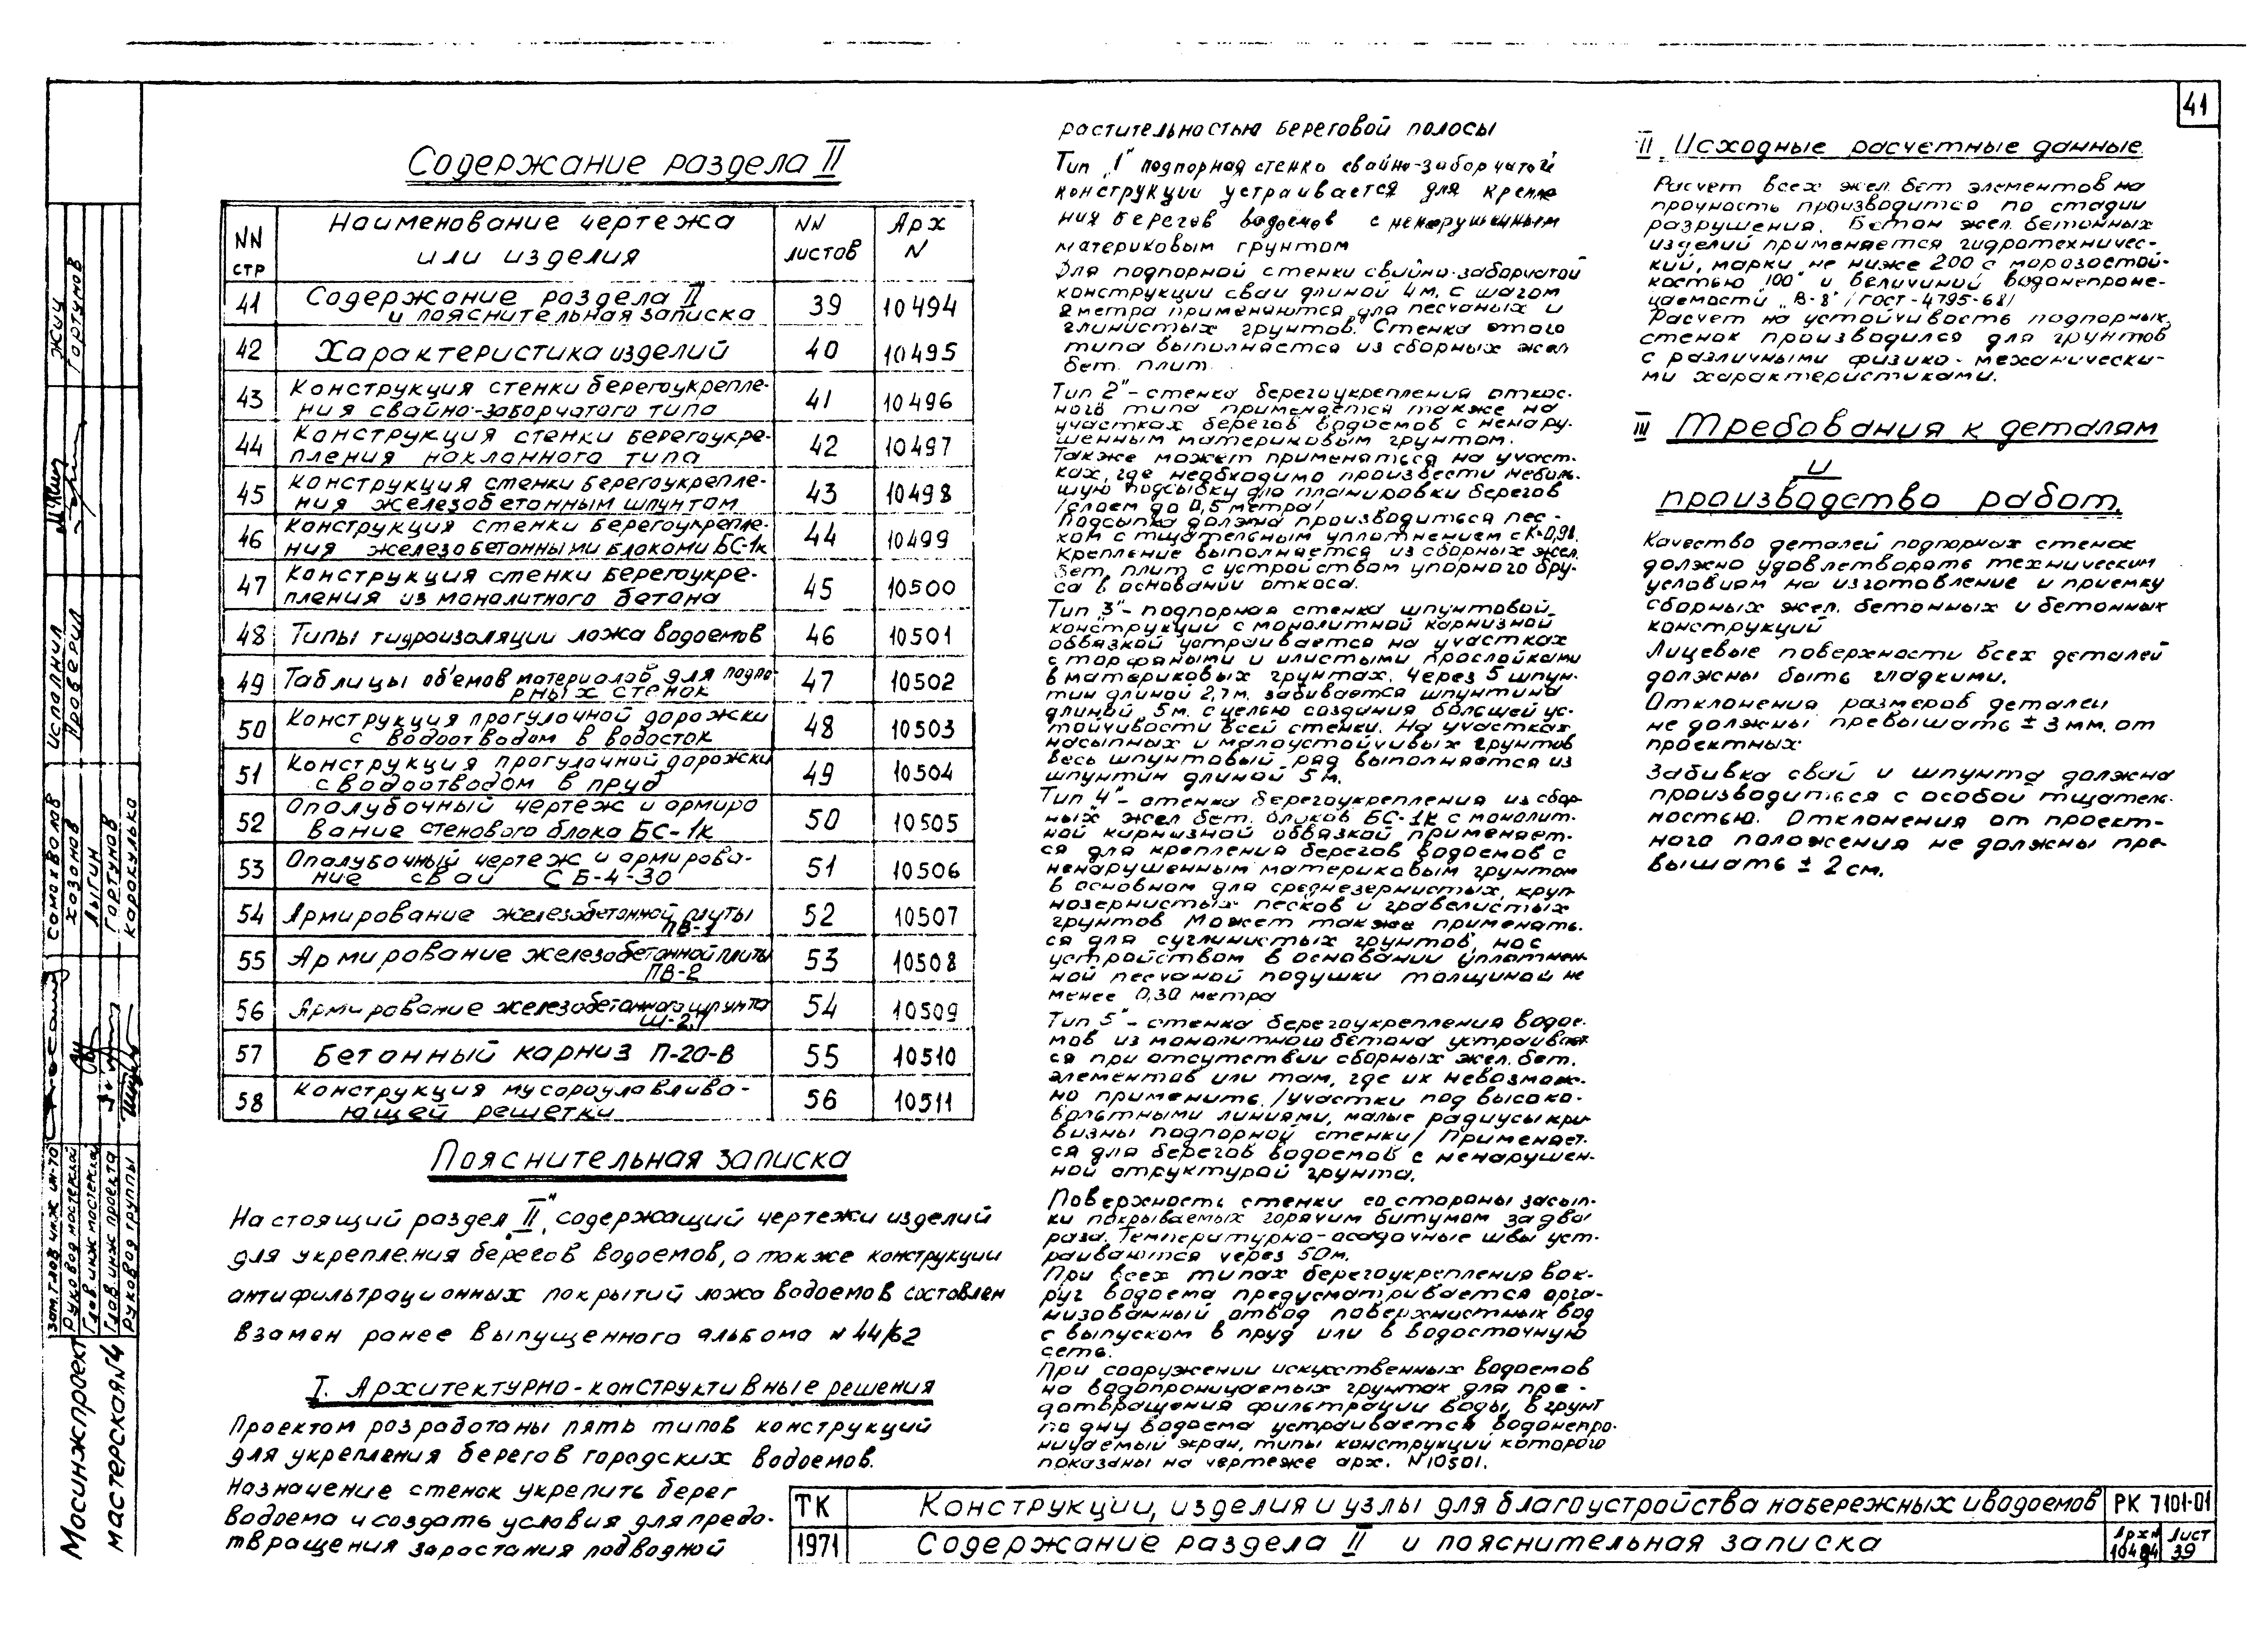 41
Содержание раздела II
NN стр | Наименование чертежа или изделия | NN листов | Арх N
41 | Содержание раздела II и пояснительная записка | 39 | 10494
42 | Характеристика изделий | 40 | 10495
43 | Конструкция стенки берегоукрепле-ния свайно-заборчатого типа | 41 | 10496
44 | Конструкция стенки берегоукре-пления наклонного типа | 42 | 10497
45 | Конструкция стенки берегоукрепле-ния железобетонным шпунтом | 43 | 10498
46 | Конструкция стенки берегоукрепле-ния железобетонными блоками БС-1к | 44 | 10499
47 | Конструкция стенки берегоукре-пления из монолитного бетона | 45 | 10500
48 | Типы гидроизоляции ложа водоемов | 46 | 10501
49 | Таблицы об'емов материалов для подпо-рных стенок | 47 | 10502
50 | Конструкция прогулочной дорожки с водоотводом в водосток | 48 | 10503
51 | Конструкция прогулочной дорожки с водоотводом в пруд | 49 | 10504
52 | Опалубочный чертеж и армиро вание стенового блока БС-1к | 50 | 10505
53 | Опалубочный чертеж и армирова-ние сваи СБ-4-30 | 51 | 10506
54 | Армирование железобетонной плиты ПВ-1 | 52 | 10507
55 | Армирование железобетонной плиты ПВ-2 | 53 | 10508
56 | Армирование железобетонного шпунта Ш-2,7 | 54 | 10509
57 | Бетонный карниз П-20-В | 55 | 10510
58 | Конструкция мусороулавлива-ющей решетки | 56 | 10511
Пояснительная записка
Настоящий раздел „II", содержащий чертежи изделий
для укрепления берегов водоемов, а также конструкции
антифильтрационных покрытий ложа водоемов составлен
взамен ранее выпущенного альбома N 44/62
I. Архитектурно-конструктивные решения
Проектом разработаны пять типов конструкций
для укрепления берегов городских водоемов.
Назначение стенок укрепить берег
водоема и создать условия для предо-
твращения зарастания подводной
растительностью береговой полосы
Тип „1" подпорная стенка свайно-заборчатой
конструкции устраивается для крепле
ния берегов водоемов с ненарушенным
материковым грунтом
Для подпорной стенки свайно-заборчатой
конструкции сваи длиной 4 м. с шагом
2 метра применяются для песчаных и
глинистых грунтов. Стенка этого
типа выполняется из сборных жел
бет. плит.
Тип 2" - стенка берегоукрепления откос-
ного типа применяется также на
участках берегов водоемов с ненару-
шенным материковым грунтом.
Также может применяться на участ-
ках, где необходимо произвести неболь-
шую подсыпку для планировки берегов
/слоем до 0,5 метра/
Подсыпка должна производиться пес-
ком с тщательным уплотнением с К=0,98.
Крепление выполняется из сборных жел.
бет. плит с устройством упорного бру-
са в основании откоса.
Тип 3" - подпорная стенка шпунтовой
конструкции с монолитной карнизной
обвязкой устраивается на участках
с торфяными и илистыми прослойками
в материковых грунтах. Через 5 шпун-
тин длиной 2,7 м. забивается шпунтина
длиной 5 м. с целью создания большей ус-
тойчивости всей стенки. На участках
насыпных и малоустойчивых грунтов
весь шпунтовый ряд выполняется из
шпунтин длиной 5 м.
Тип 4" - стенка берегоукрепления из сбор-
ных жел бет. блоков БС-1К с монолит-
ной карнизной обвязкой применяет-
ся для крепления берегов водоемов с
ненарушенным материковым грунтом
в основном для среднезернистых, круп-
нозернистых песков и гравелистых
грунтов Может также применять-
ся для суглинистых грунтов, но с
устройством в основании уплотнен-
ной песчаной подушки толщиной не
менее 0,30 метра
Тип 5" - стенка берегоукрепления водое-
мов из монолитного бетона устраивает-
ся при отсутствии сборных жел. бет.
элементов или там, где их невозмож-
но применить. /участки под высоко-
вольтными линиями, малые радиусы кри-
визны подпорной стенки/ Применяет-
ся для берегов водоемов с ненарушен-
ной структурой грунта.
Поверхность стенки со стороны засып-
ки покрываемых горячим битумом за два
раза. Температурно-осадочные швы уст-
раиваются через 50 м.
При всех типах берегоукрепления вок-
руг водоема предусматривается орга-
низованный отвод поверхностных вод
с выпуском в пруд или в водосточную
сеть.
При сооружении искусственных водоемов
на водопроницаемых грунтах для пре-
дотвращения фильтрации воды в грунт
по дну водоема устраивается водонепро-
ницаемый экран, типы конструкций которого
показаны на чертеже арх. N 10501.
II. Исходные расчетные данные
Расчет всех жел. бет элементов на
прочность производится по стадии
разрушения. Бетон жел. бетонных
изделий применяется гидротехничес-
кий, марки не ниже 200 с морозостой-
костью „100" и величиной водонепрони-
цаемости „В-8" /ГОСТ-4795-68/
Расчет на устойчивость подпорных
стенок производился для грунтов
с различными физико-механически-
ми характеристиками.
III Требования к деталям
и
производство работ.
Качество деталей подпорных стенок
должно удовлетворять техническим
условиям на изготовление и приемку
сборных жел. бетонных и бетонных
конструкций
Лицевые поверхности всех деталей
должны быть гладкими.
Отклонения размеров деталей
не должны превышать ± 3 мм. от
проектных.
Забивка свай и шпунта должна
производиться с особой тщатель-
ностью. Отклонения от проект-
ного положения не должны пре-
вышать ± 2 см.
ТК
1971
Конструкции, изделия и узлы для благоустройства набережных и водоемов
Содержание раздела II и пояснительная записка
РК 7101-01
Арх N 10494
Лист 39
Мосинжпроект
мастерская N4
Зам. глав инж ин-та | Самохвалов
Руковод мастерской | Хазанов
Глав. инж мастерской | Лыгин
Глав. инж проекта | Гортунов
Руковод группы | Каракулька
исполнил | Жиц
Проверил | Гортунов